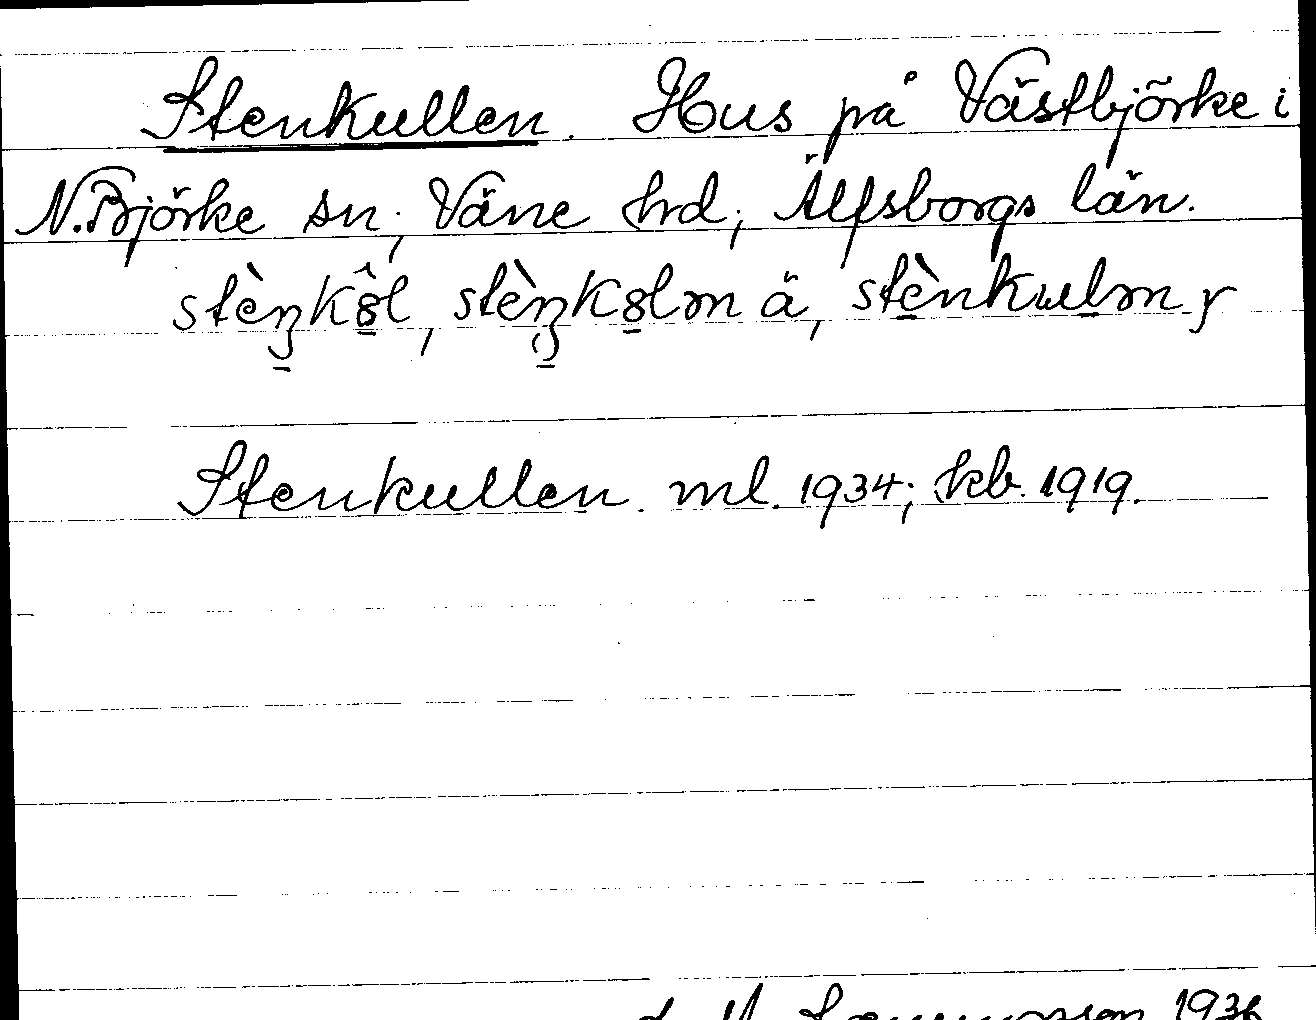 Stenkullen. Hus på Västbjörke i
N. Björke sn, Väne hrd, Älfsborgs län.
stènkôl, stènkolm ä, stènkulm y
Stenkullen ml. 1934; kb. 1919.
1936